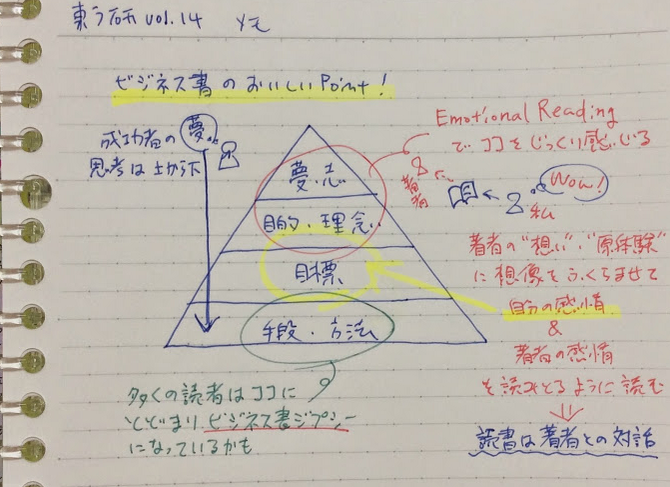 東ラ研 vol.14 メモ
ビジネス書のおいしいPoint!
成功者の夢
思考は上から下
夢・志
目的・理念
目標
手段・方法
Emotional Reading
で ココをじっくり感じる
著者
Wow!
私
著者の"想い"・"原体験"
に想像をふくらませて
自分の感情
&
著者の感情
を読みとるように読む
読書は著者との対話
多くの読者はココに
とどまりビジネス書ジプシー
になっているかも